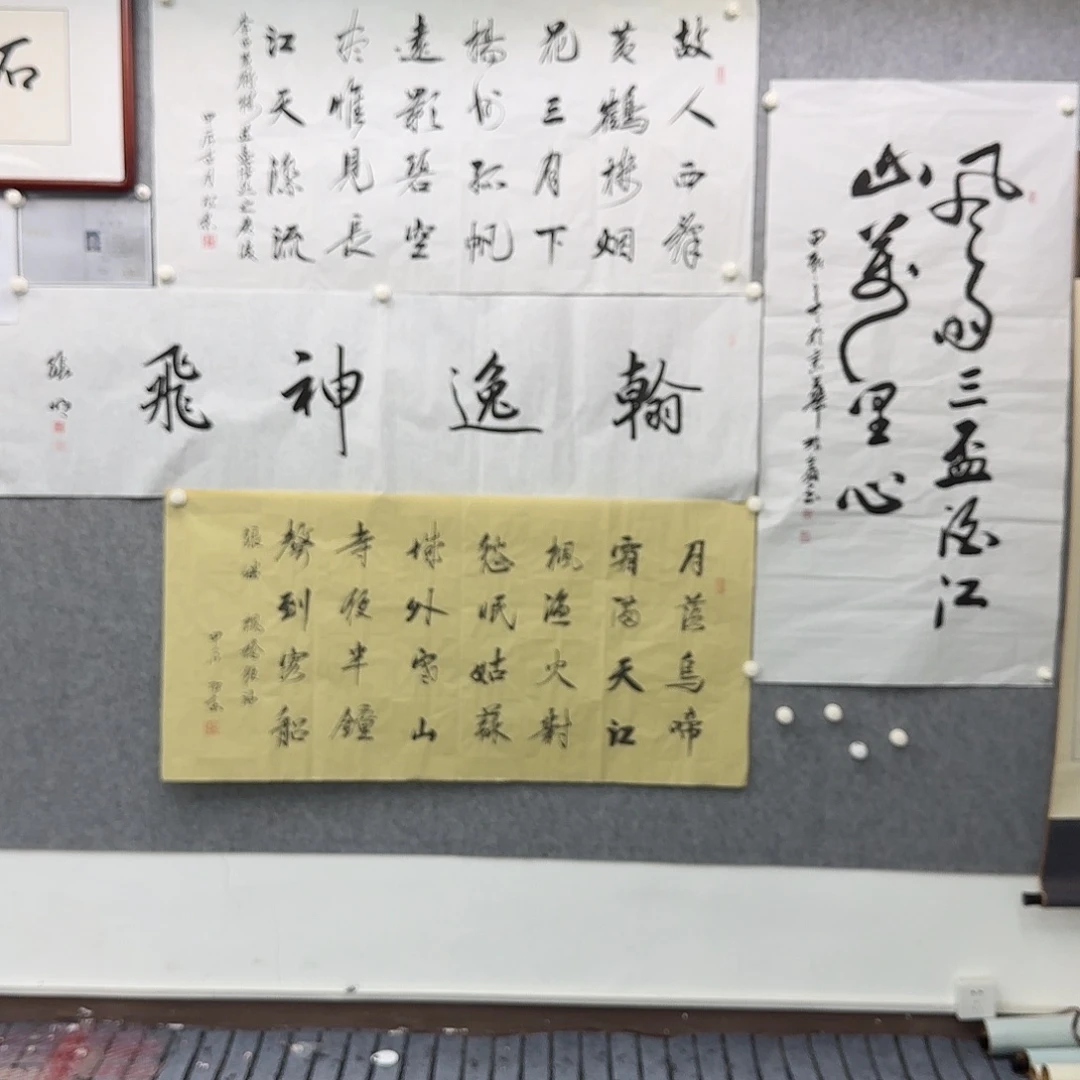 石
故人西辭
黄鶴樓烟
花三月下
揚州孤帆
遠影碧空
盡惟見長
江天際流
李白黄鶴樓送孟浩然之廣陵
甲辰
翰逸神飛
月落烏啼
霜滿天江
楓漁火對
愁眠姑蘇
城外寒山
寺夜半鐘
聲到客船
張継 楓橋夜泊
甲辰
風雨三盃酒江
山萬里心